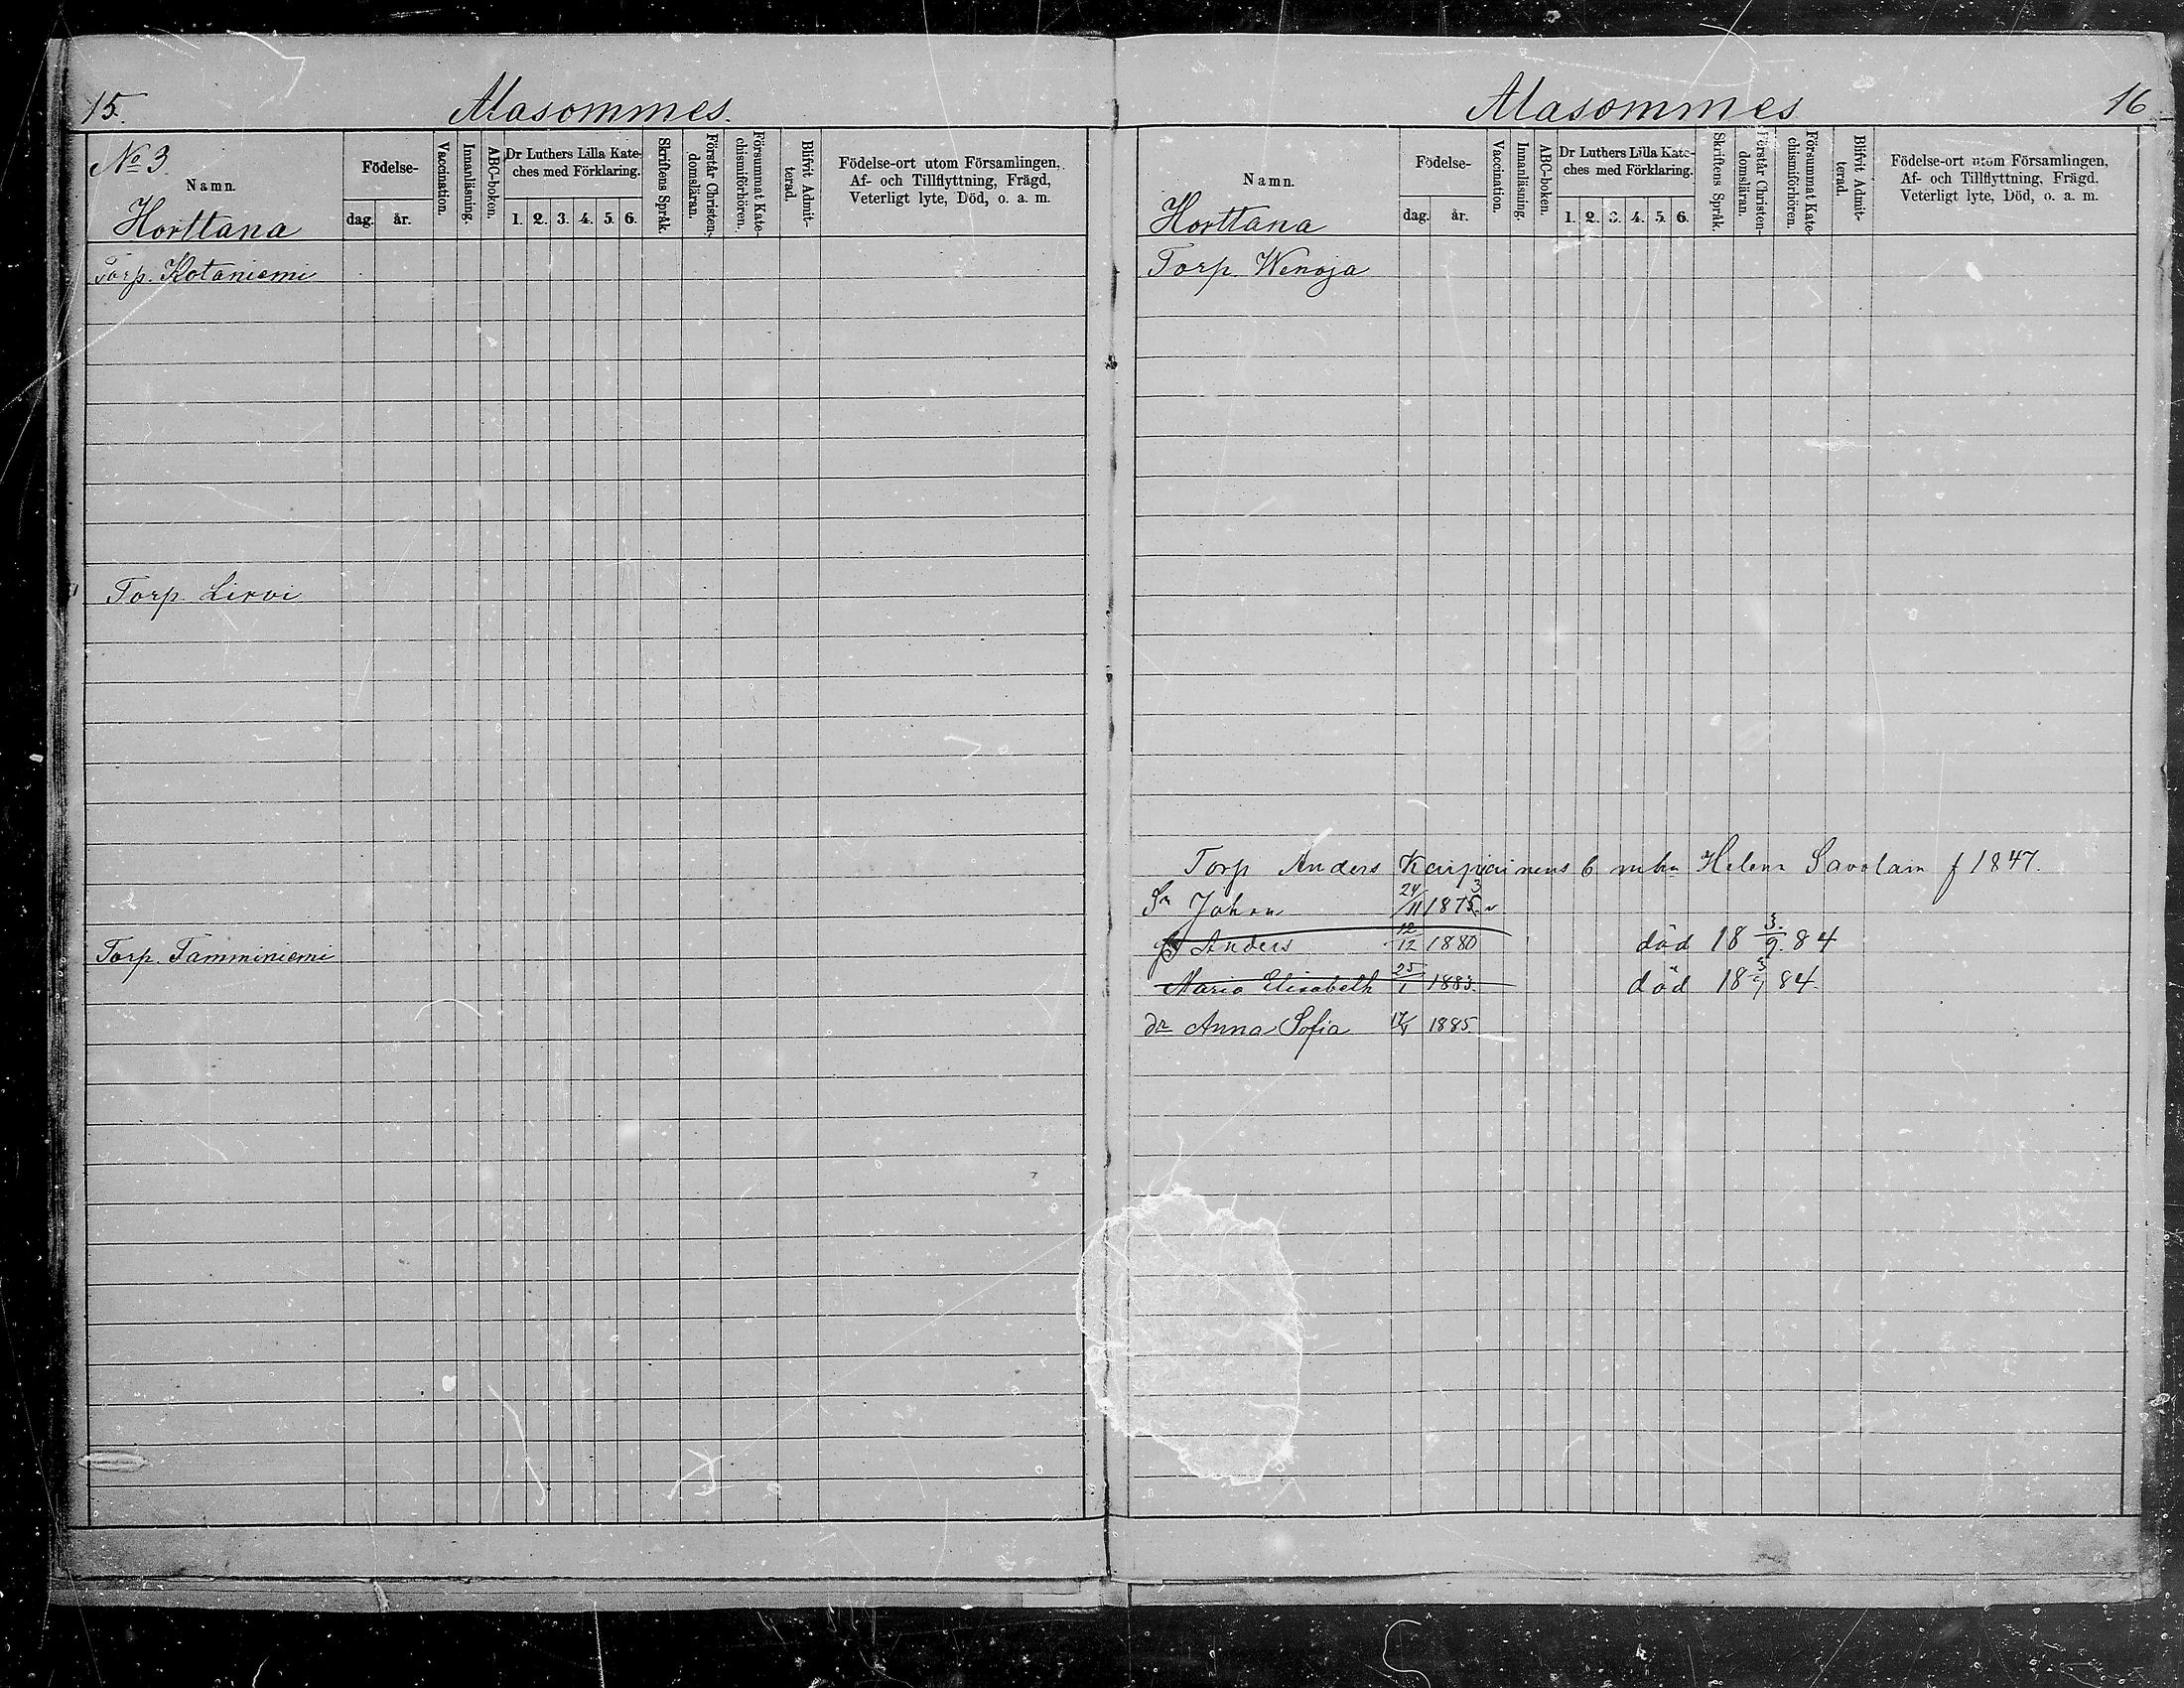 15.
Alasommes.
No 3.
Namn.
Horttana
Födelse-
dag.
år.
Vaccination.
Innanläsning.
ABC-bokon.
Dr Luthers Lilla Kate-
ches med Förklaring.
1. 2. 3. 4. 5. 6.
Skriftens Språk.
Förstår Christen-
domsläran.
Försummat Kate-
chismiförhören.
Blifvit Admit-
terad.
Födelse-ort utom Församlingen,
Af- och Tillflyttning, Frägd,
Veterligt lyte, Död, o. a. m.
Torp. Kotaniemi
Torp. Lirvi
Torp. Tamminiemi
Alasommes
16
Namn.
Horttana
Födelse-
dag.
år.
Vaccination.
Innanläsning.
ABC-boken.
Dr Luthers Lilla Kate-
ches med Förklaring.
1. 2. 3. 4. 5. 6.
Skriftens Språk.
Förstår Christen-
domsläran.
Försummat Kate-
chismiförhören.
Blifvit Admit-
terad.
Födelse-ort utom Församlingen,
Af- och Tillflyttning, Frägd.
Veterligt lyte, Död, o. a. m.
Torp. Wenoja
Torp Anders Karpiainens Helena Savolain f 1847.
Sn Johan 24/11 1875
Anders 12/12 1880 död 18 3/9. 84
Maria Elisabeth 25/1 1883. död 18 3/9 84.
dr Anna Sofia 1885